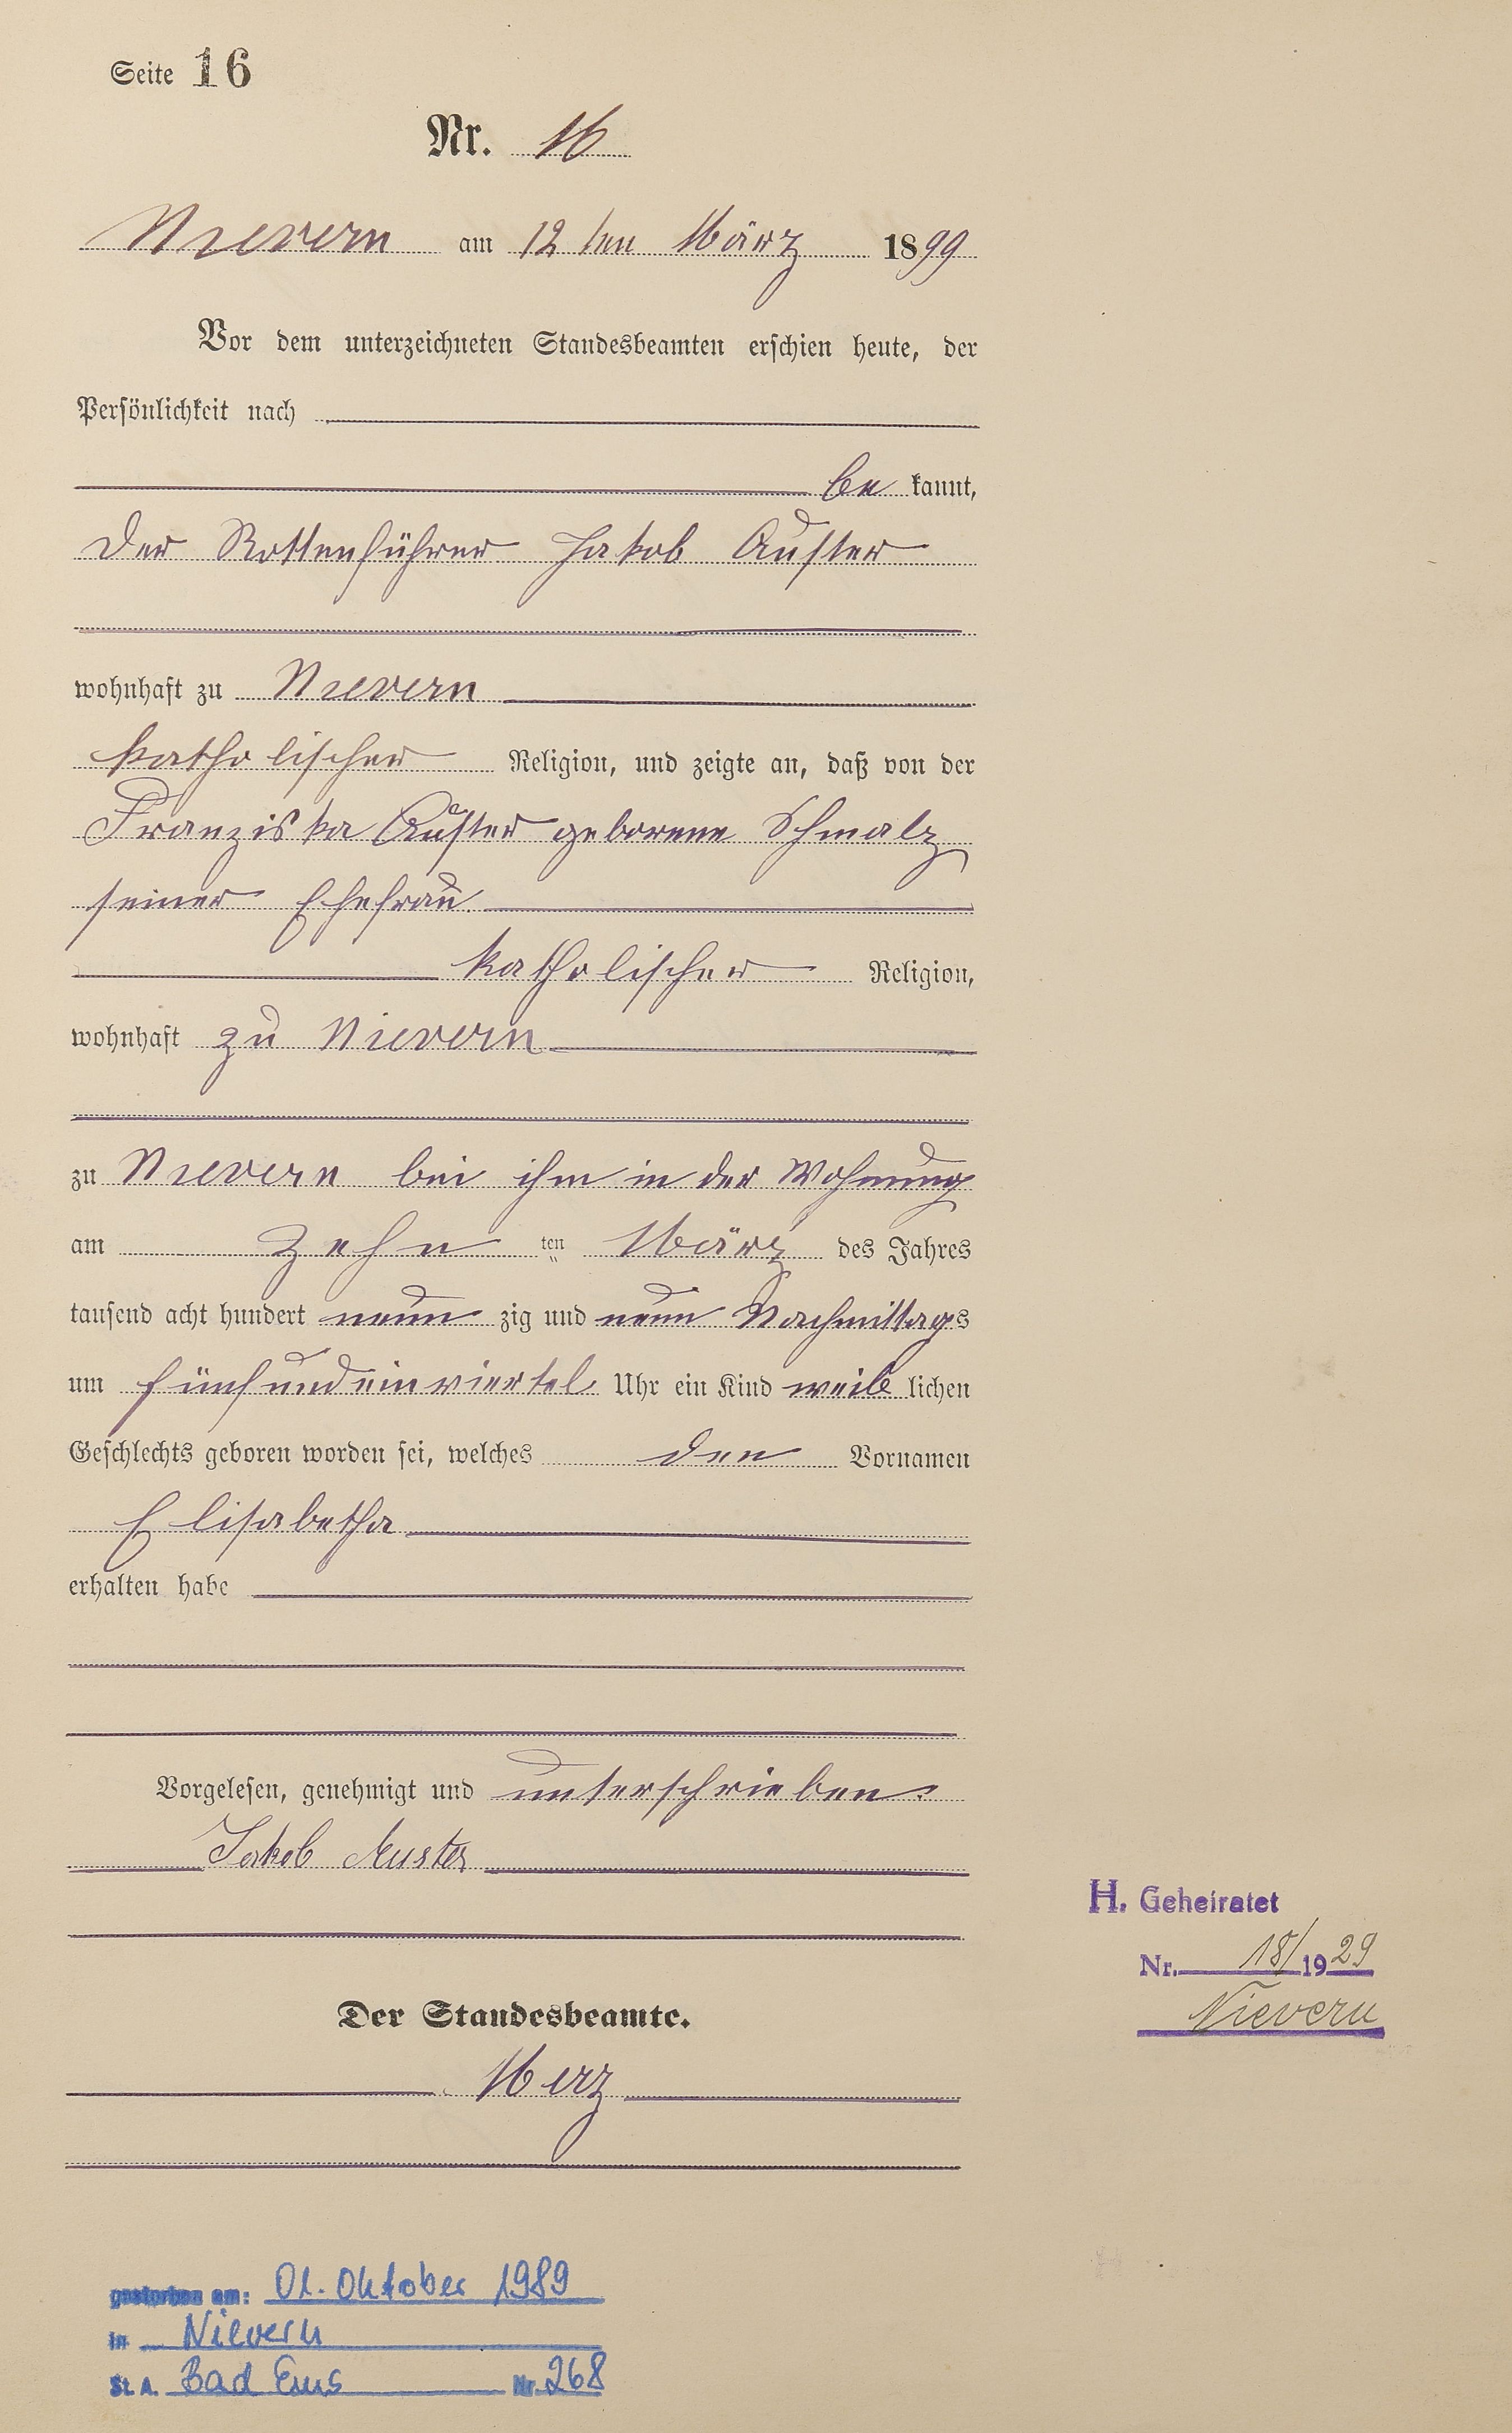 Seite 16
Nr. 16
Nievern am 12ten März 1899
Vor dem unterzeichneten Standesbeamten erschien heute, der
Persönlichkeit nach
be kannt,
der Rottenführer Jakob Auster
wohnhaft zu Nievern
katholischer Religion, und zeigte an, daß von der
Franziska Auster geborene Schmalz
seiner Ehefrau
katholischer Religion,
wohnhaft zu Nievern
zu Nievern bei ihm in der Wohnung
am zehn ten März des Jahres
tausend acht hundert neun zig und neun Nachmittags
um fünfundeinviertel Uhr ein Kind weib lichen
Geschlechts geboren worden sei, welches den Vornamen
Elisabetha
erhalten habe
Vorgelesen, genehmigt und unterschrieben.
Jakob Auster
H. Geheiratet
Nr. 18/1929
Nievern
Der Standesbeamte.
Merz
gestorben am: 01. Oktober 1989
in Nievern
St. A. Bad Ems Nr. 268